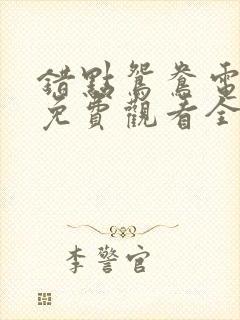 錯點鴛鴦電
免費觀看全
李警官